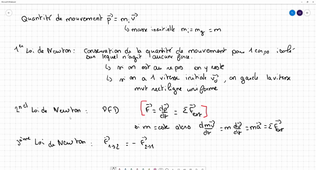 Quantité de mouvement p⃗ = m_i v⃗
↳ masse inertielle m_i = m_g = m
1ère Loi de Newton : Conservation de la quantité de mouvement pour 1 corps isolé
sur lequel n'agit aucune force.
↳ si on est au repos on y reste
↳ si on a 1 vitesse initiale v⃗₀, on garde la vitesse
mvt rectiligne uniforme
2nd Loi de Newton : PFD [F⃗ = dp⃗/dt = ΣF⃗ext]
si m = cste alors dmv⃗/dt = m dv⃗/dt = ma⃗ = ΣF⃗ext
3ème Loi de Newton : F⃗1→2 = - F⃗2→1